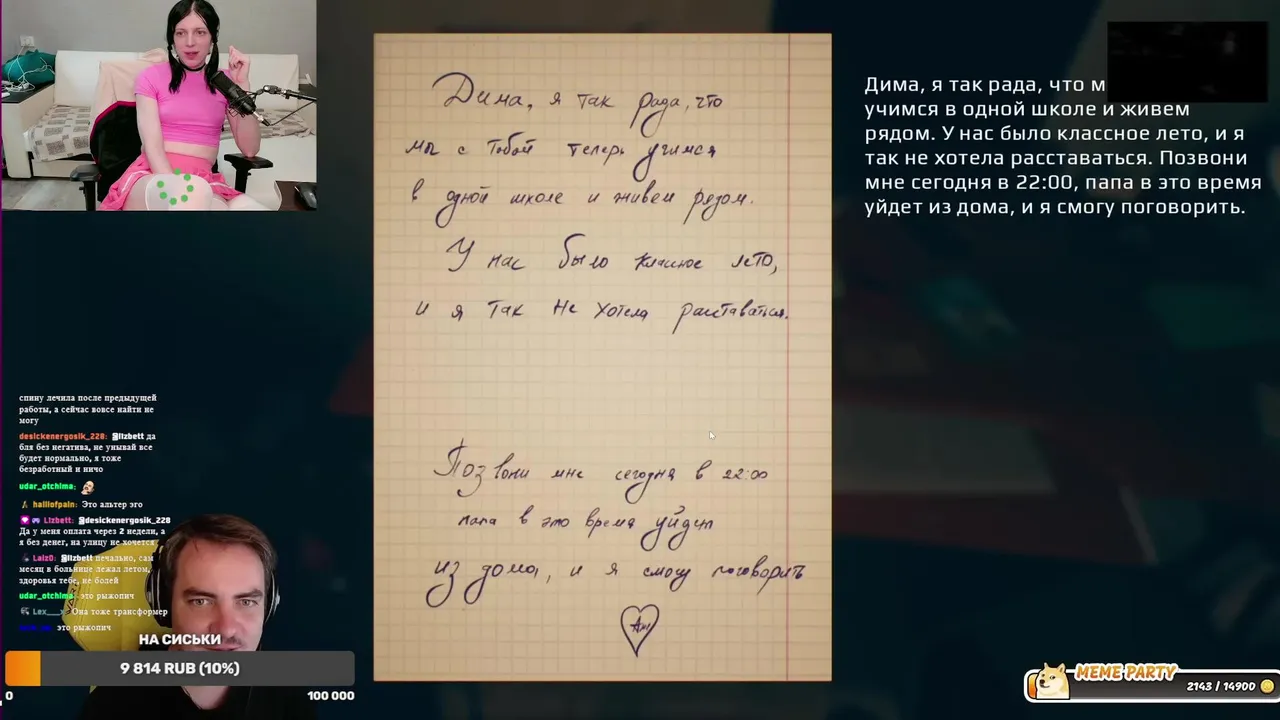 Дима, я так рада, что
мы с тобой теперь учимся
в одной школе и живем рядом.
У нас было классное лето,
и я так не хотела расставаться.
Позвони мне сегодня в 22:00
папа в это время уйдет
из дома, и я смогу поговорить
Дима, я так рада, что м
учимся в одной школе и живем
рядом. У нас было классное лето, и я
так не хотела расставаться. Позвони
мне сегодня в 22:00, папа в это время
уйдет из дома, и я смогу поговорить.
спину лечила после предыдущей
работы, а сейчас вовсе найти не
могу
desickenergosik_228: @lizbett да
бля без негатива, не унывай все
будет нормально, я тоже
безработный и ничо
udar_otchima:
halllofpain: Это альтер эго
Lizbett: @desickenergosik_228
Да у меня оплата через 2 недели, а
я без денег, на улицу не хочется
Laiz0: @lizbett печально, сам
месяц в больнице лежал летом,
здоровья тебе, не болей
udar_otchima: это рыжопич
Lex___x: Она тоже трансформер
это рыжопич
НА СИСЬКИ
9 814 RUB (10%)
0
100 000
MEME PARTY
2143 / 14900